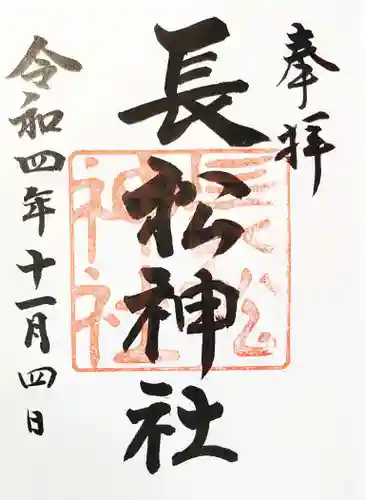 奉拝
長松神社
令和四年十一月四日
長松
神社